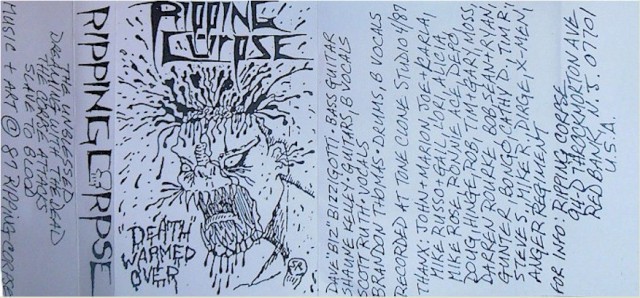 MUSIC + ART © 87 RIPPING CORPSE
THE UNBLESSED
DRAGGING OUT THE DEAD
THE INSANE ATTACKS
SLAVE TO BLOOD
RIPPING CORPSE
RIPPING
CORPSE
"DEATH
WARMED
OVER"
SR
DAVE "BIZ" BIZZIGOTTI - BASS GUITAR
SHAUNE KELLEY - GUITARS, B VOCALS
SCOTT RUTH - VOCALS
BRANDON THOMAS - DRUMS, B VOCALS
RECORDED AT TONE CLONE STUDIO 4/87
THANX: JOHN + MARION, JOE + KARLA,
MIKE RUSSO + GAIL, LORI, ALICIA,
MIKE ROSE, RONNIE, ICE, DEPO,
DOUG, HINGE, ROB, TIM + GARY, MOSS,
DARREN, ROURKE, BOB, SEAN + RYAN,
GUNTER, BONGO, CATHY D., TIM R.,
STEVE S, MIKE R., DIRGE, X-MEN,
ANGER REGIMENT
FOR INFO: RIPPING CORPSE
THROCKMORTON AVE
RED BANK, N.J. 07701
U.S.A.